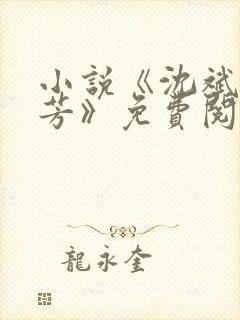 小說《沈斌
芳》免費閱
龍永奎